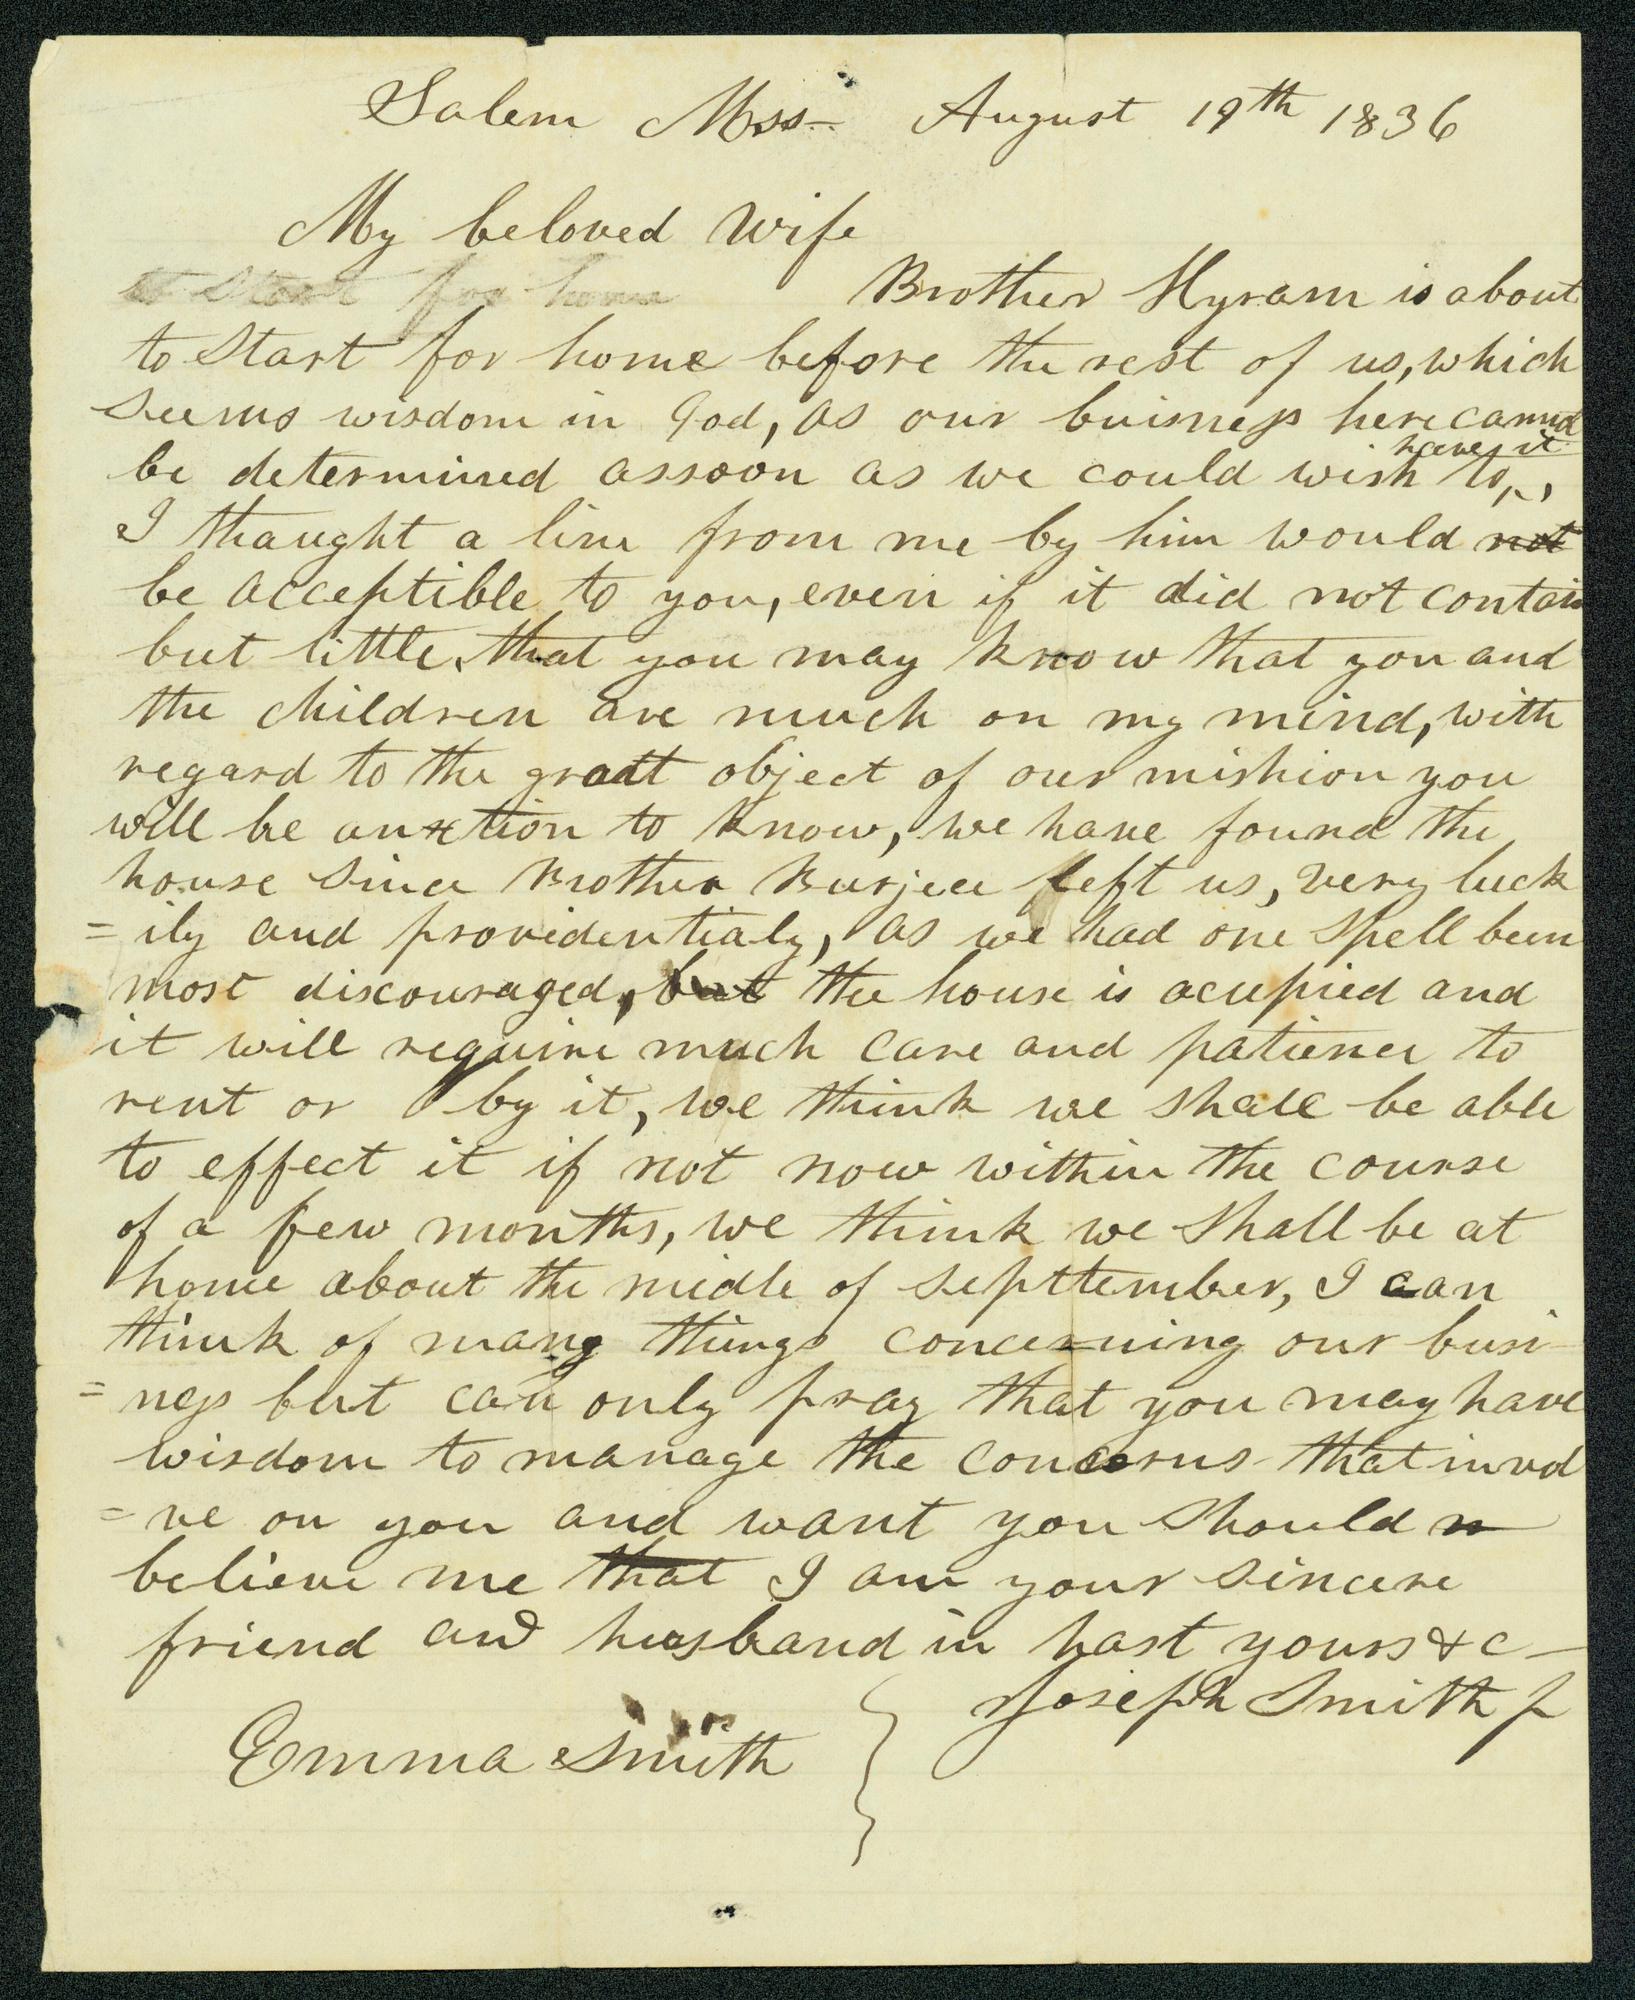 Salem Mss- August 19th 1836
My beloved Wife
to Start for home Brother Hyram is about
to Start for home before the rest of us, which
seems wisdom in God, as our buisness here cannot
be determined assoon as we could wish to,
have it
I thaught a line from me by him would not
be acceptible to you, even if it did not contain
but little, that you may know that you and
the children are much on my mind, with
regard to the gratt object of our mishion you
will be anxtion to know, we have found the
house since Brother Burjece left us, very luck
=ily and providentialy, as we had one spell been
most discouraged, but the house is ocupied and
it will require much care and patience to
rent or by it, we think we shall be able
to effect it if not now within the course
of a few months, we think we shall be at
home about the midle of Septtember, I can
think of many things concerning our busi-
=ness but can only pray that you may have
wisdom to manage the concerns that invol
=ve on you and want you should n
believe me that I am your sincere
friend and husband in hast yours &c-
Joseph Smith Jr
Emma Smith